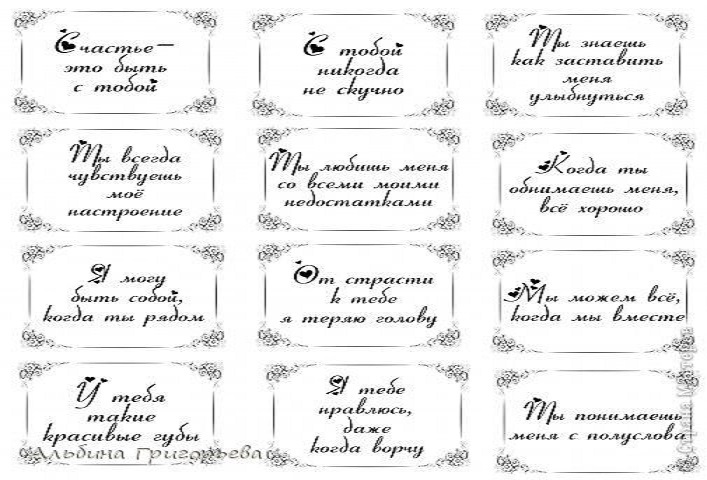 Счастье—
это быть
с тобой
С тобой
никогда
не скучно
Ты знаешь
как заставить
меня
улыбнуться
Ты всегда
чувствуешь
моё
настроение
Ты любишь меня
со всеми моими
недостатками
Когда ты
обнимаешь меня,
всё хорошо
Я могу
быть собой,
когда ты рядом
От страсти
к тебе
я теряю голову
Мы можем всё,
когда мы вместе
У тебя
такие
красивые губы
Я тебе
нравлюсь,
даже
когда ворчу
Ты понимаешь
меня с полуслова
Альбина Григорьева
Страна Мастеров